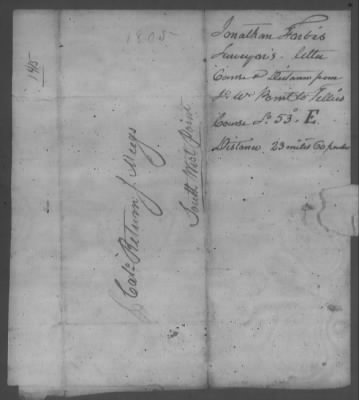 1805
Jonathan Forbis
Surveyor's letter
Course & Distance from
So. W. Point to Tellico
Course So. 53° E.
Distance 23 miles 60 poles
South West Point
Capt. Return J. Meigs